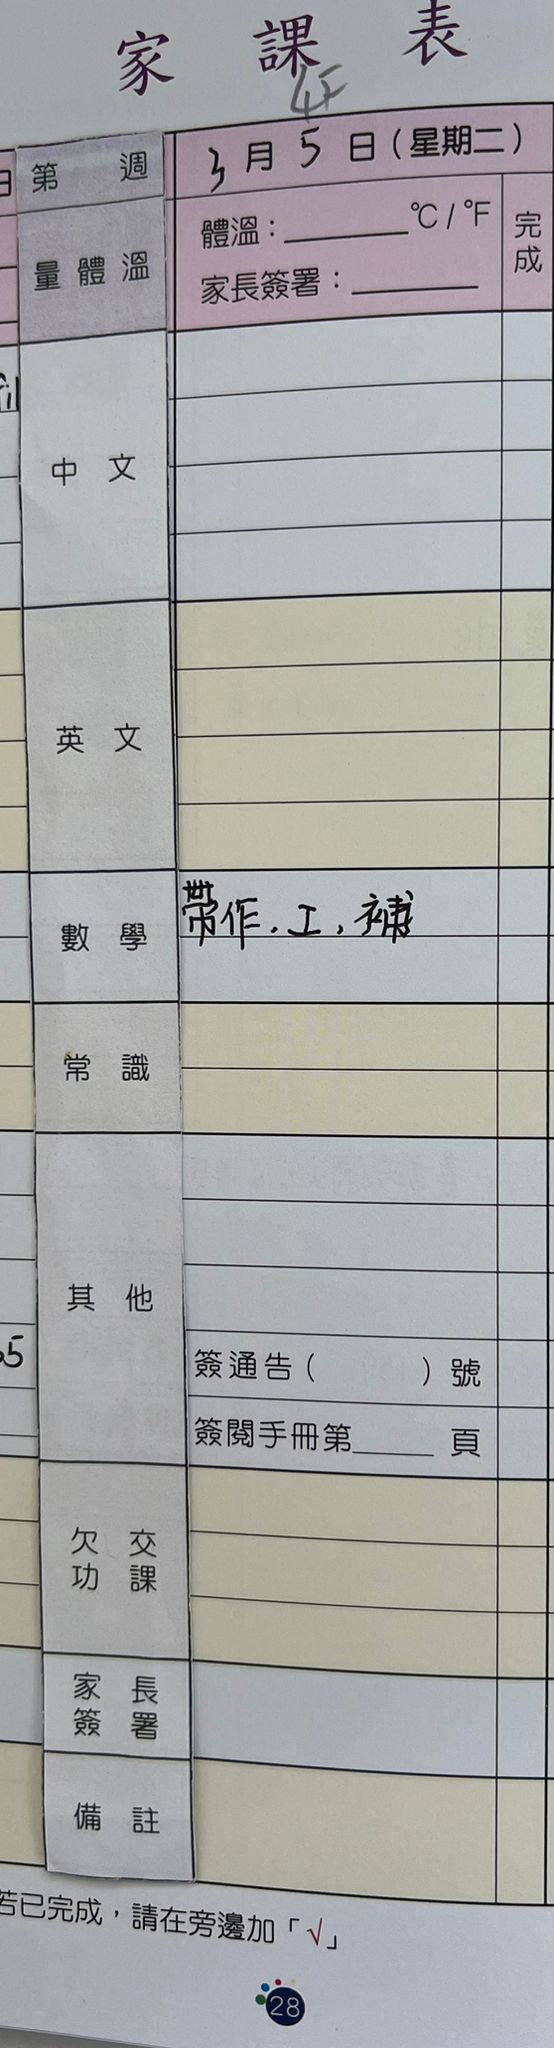 家課表
4F
第 週
3月5日(星期二)
量體溫
體溫：______°C/°F
家長簽署：______
完成
中文
英文
數學
帶作.工.補
常識
其他
65
簽通告( )號
簽閱手冊第____頁
欠交功課
家長簽署
備註
若已完成，請在旁邊加「√」
28